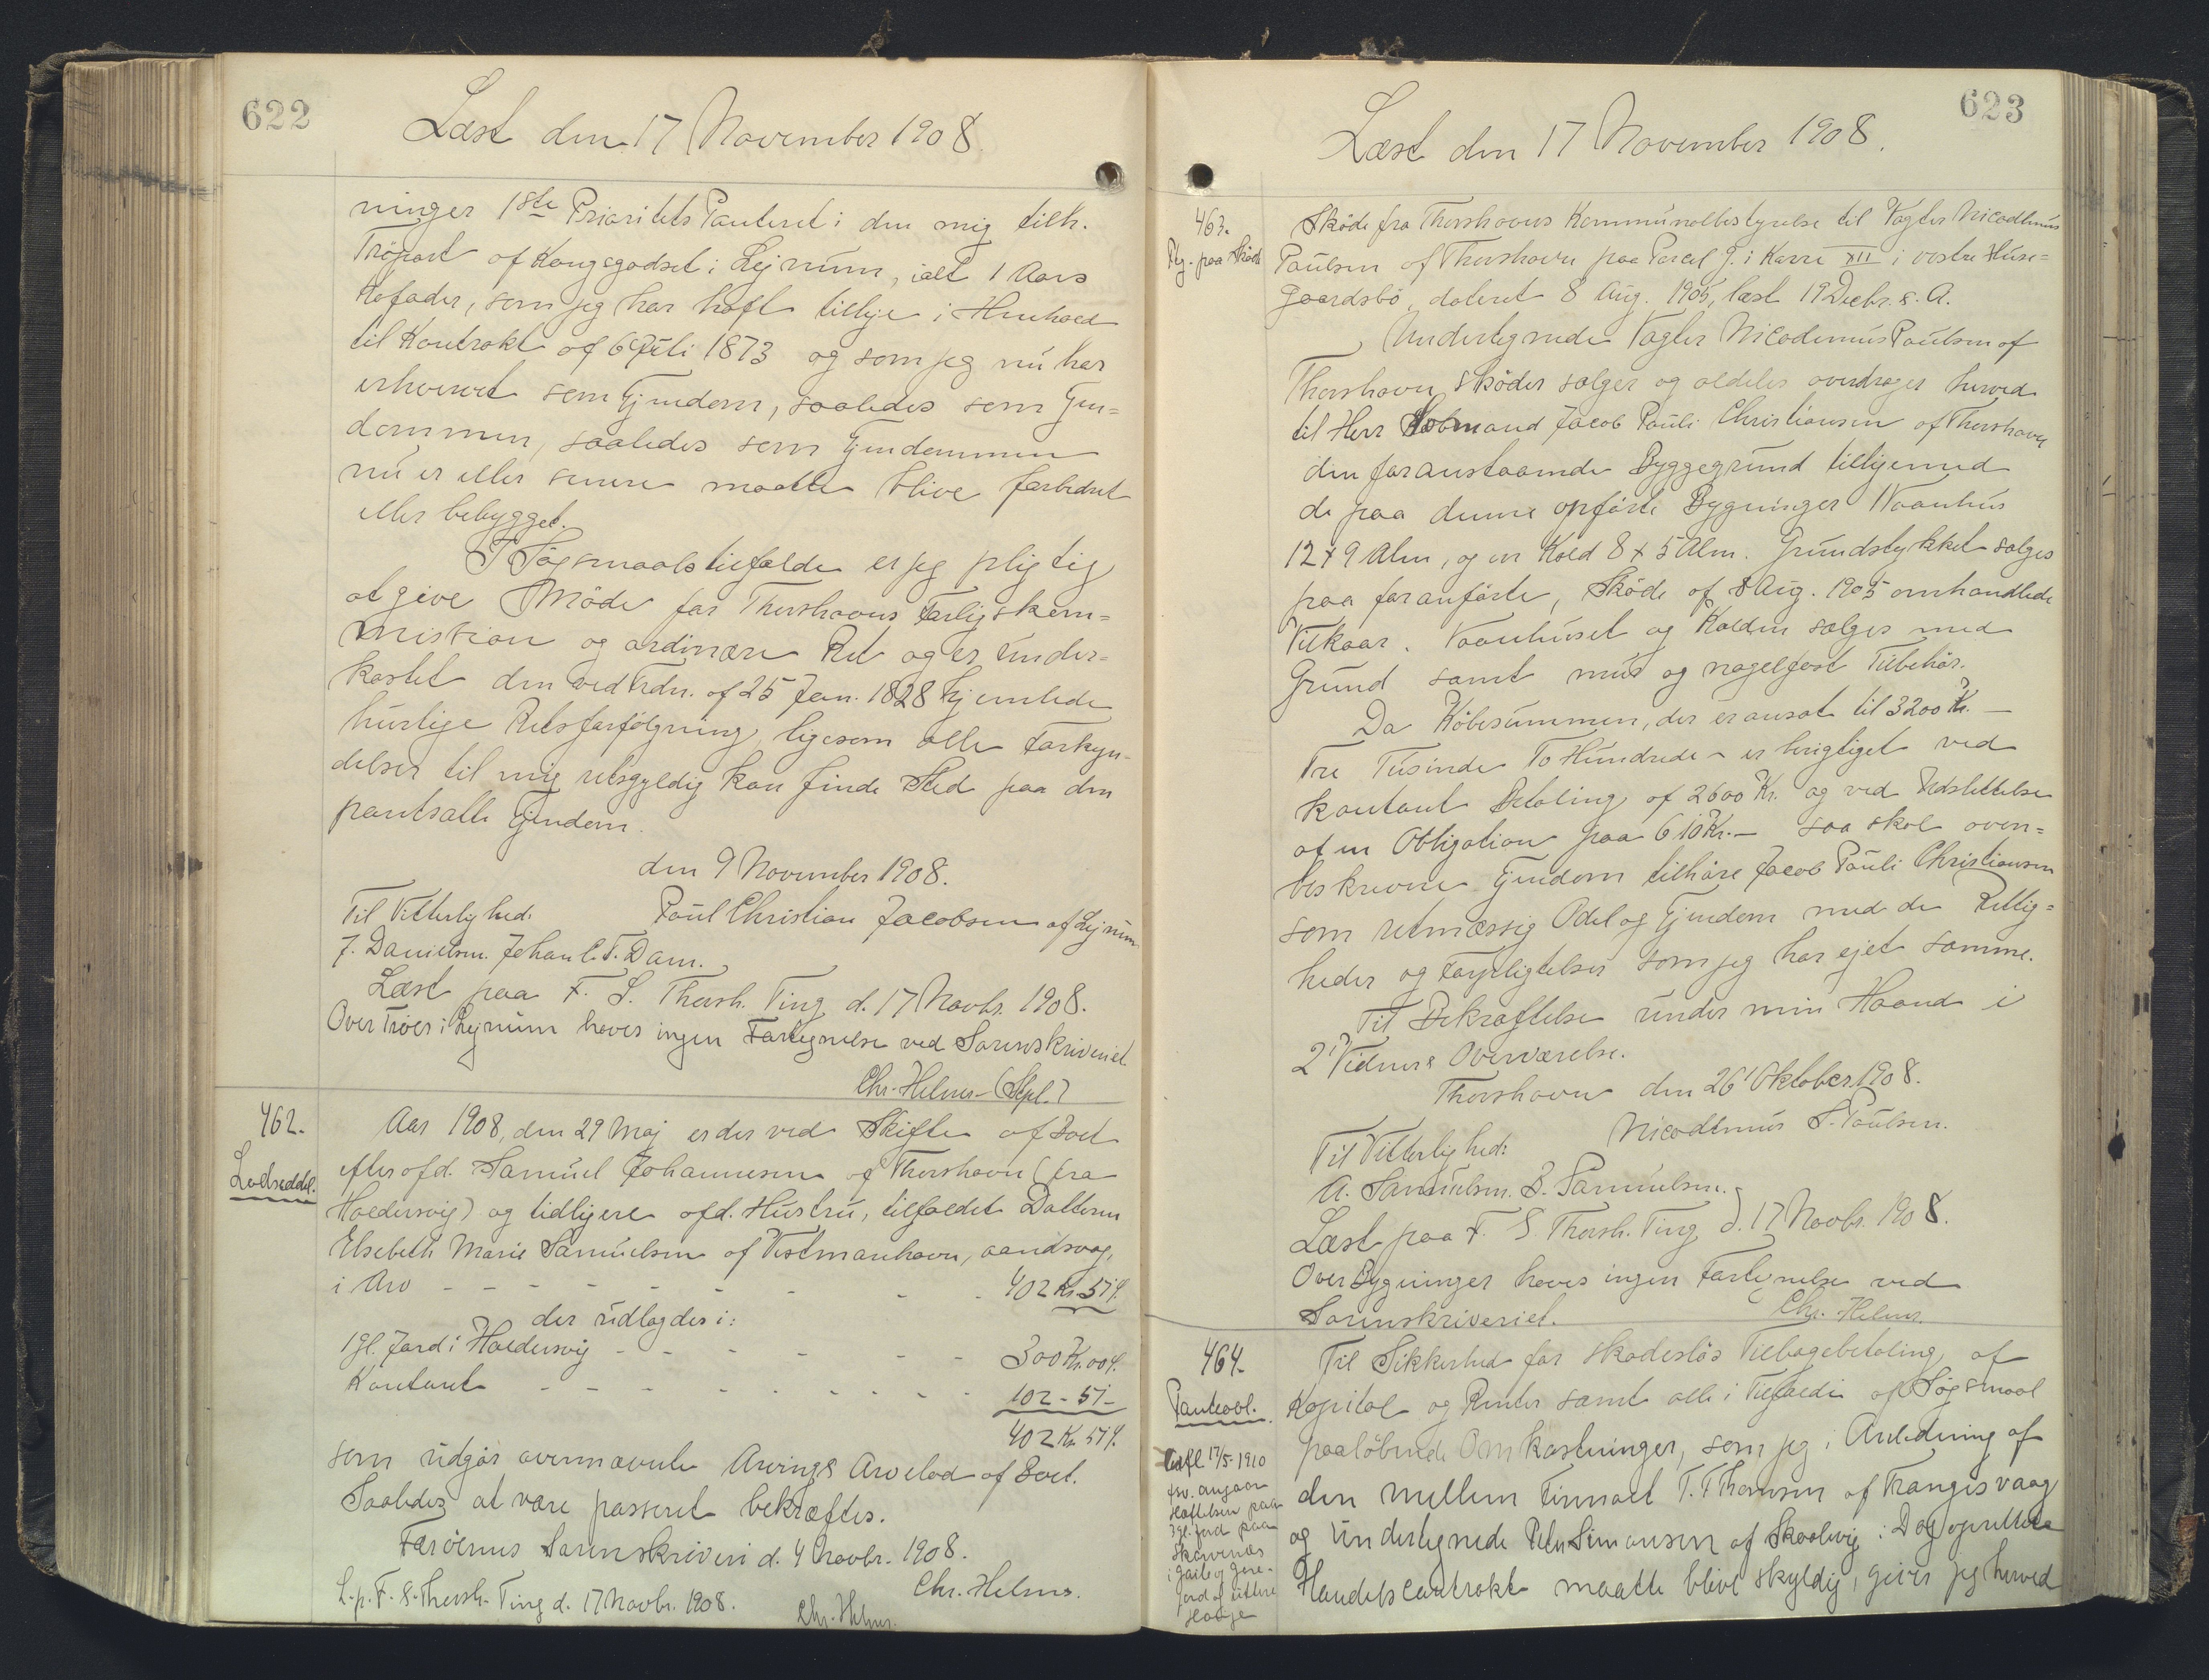 622
Læst den 17 November 1908.
ninger 1ste Prioritets Panteret i den mig tilh.
Tröpart af Kongsgodset i Lejnum, ialt 1 Aars
Kofoder, som jeg har haft tilleje i Henhold
til Kontrakt af 6 Juli 1873 og som jeg nu har
erhvervet som Ejendom, saaledes som Ejen=
dommen, saaledes som Ejendommen
nu er eller senere maatte blive forbedret
eller bebygget.
I Sögsmaalstilfælde er jeg pligtig
at give Möde for Thorshavns Forligskom=
mission og ordinære Ret og er under=
kastet den ved Frdn. af 25 Jan. 1828 hjemlede
hurtige Retsforfölgning, ligesom alle Forkyn-
delser til mig retsgyldig kan finde Sted paa den
pantsatte Ejendom.
den 9 November 1908.
Til Vitterlighed: Poul Christian Jacobsen af Lejnum
J. Danielsen. Johan C. T. Dam.
Læst paa F. S. Thorsh. Ting d. 17 Novbr. 1908.
Over Tröer i Lejnum haves ingen Fortegnelse ved Sorenskriveriet
Chr. Helms (Stpl.)
462.
Lodseddel.
Aar 1908, den 29 Maj er der ved Skifte af Boet
efter afd. Samuel Johannesen af Thorshavn (fra
Haldersvig) og tidligere afd. Hustru, tilfaldet Datteren
Elsebeth Marie Samuelsen af Vestmanhavn, aandssvag,
i Arv - - - - - - - 402 Kr. 51 Ø.
der udlagdes i:
1 gl. Jord i Haldersvig - - - - - - 300 Kr. 00 Ø.
Kontant - - - - - - - - 102 - 51 -
402 Kr. 51 Ø.
som udgör ovennævnte Arvings Arvelod af Boet.
Saaledes at være passeret bekræftes.
Færöernes Sorenskriveri d. 4 Novbr. 1908.
Chr. Helms.
L. p. F. S. Thorsh. Ting d. 17 Novbr. 1908.
Chr. Helms.
623
Læst den 17 November 1908.
463.
Ptg. paa Sköde
Sköde fra Thorshavns Kommunalbestyrelse til Vagter Nicodemus
Poulsen af Thorshavn paa Parcel J. i Karré XII i vestre Huse=
gaardsbö, dateret 8 Aug. 1905, læst 19 Decbr. s. A.
Undertegnede Vagter Nicodemus Poulsen af
Thorshavn sköder sælger og aldeles overdrager herved
til Herr Købmand Jacob Pauli Christiansen af Thorshavn
den foranstaaende Byggegrund tilligemed
de paa denne opförte Bygninger Vaanhus
12 x 9 Alen, og en Kold 8 x 5 Alen. Grundstykket sælges
paa foranförte, Sköde af 8 Aug. 1905 omhandlede
Vilkaar. Vaanhuset og Kolden sælges med
Grund samt mur og nagelfast Tilbehör.
Da Köbesummen, der er ansat til 3200 Kr. -
Tre Tusinde To Hundrede - er berigtiget ved
kontant Betaling af 2600 Kr. og ved Udstettelse
af en Obligation paa 610 Kr. - saa skal oven=
beskrevne Ejendom tilhöre Jacob Pauli Christiansen
som retmæssig Odel og Ejendom med de Rettig=
heder og Forpligtelser som jeg har ejet samme.
Til Bekræftelse under min Haand i
2 Vidners Overværelse.
Thorshavn den 26 Oktober 1908.
Nicodemus S. Poulsen.
Til Vitterlighed:
A. Samuelsen. B. Samuelsen.
Læst paa F. S. Thorsh. Ting d. 17 Novbr. 1908.
Over Bygninger haves ingen Fortegnelse ved
Sorenskriveriet. Chr. Helms.
464.
Panteobl.
17/5 1910
angaaen
Hæftelsen paa
3 gl. Jord paa
Skarvenæs
Til Sikkerhed for skadeslös Tilbagebetaling af
Kapital og Renter samt alle i Tilfælde af Sögsmaal
paalöbende Omkostninger, som jeg i Anledning af
den mellem Firmaet T. F. Thomsen af Trangisvaag
og Undertegnede Peter Simonsen af Skaalevig i Dag oprettede
Handelscontrakt maatte blive skyldig, giver jeg herved